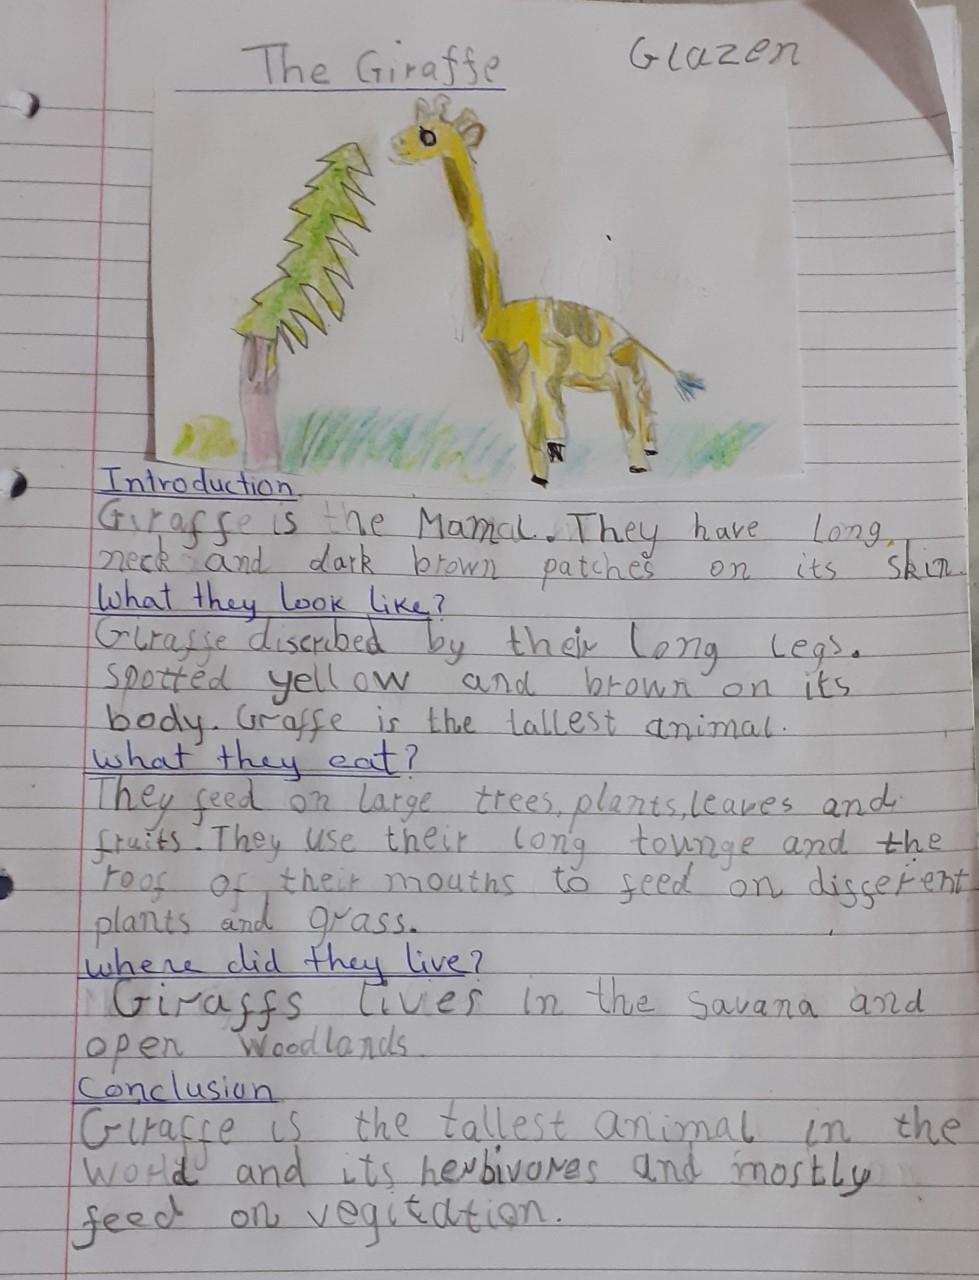 The Giraffe
Glazen
Introduction
Giraffe is the Mamal. They have long
neck and dark brown patches on its skin
What they look like?
Giraffe discribed by their long legs.
spotted yellow and brown on its
body. Graffe is the tallest animal.
what they eat?
They feed on large trees, plants, leaves and
fruits. They use their long tounge and the
roof of their mouths to feed on different
plants and grass.
where did they live?
Giraffs lives in the Savana and
open woodlands
Conclusion
Giraffe is the tallest animal in the
world and its herbivores and mostly
feed on vegitation.